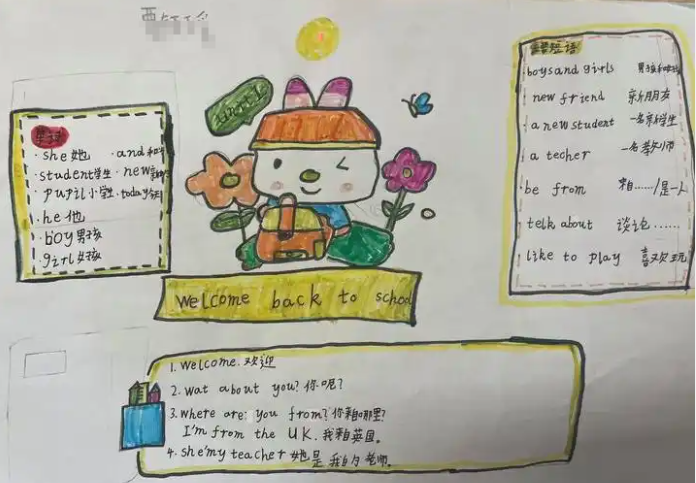 Unit 1
单词
· she 她 · and 和
· student学生 · new新的
· pupil小学生 · today今天
· he 他
· boy男孩
· girl女孩
Welcome back to school
重要短语
· boys and girls 男孩和女孩
new friend 新朋友
a new student 一名新学生
a techer 一名教师
be from 来自……/是一人
telk about 谈论……
like to play 喜欢玩
1. Welcome. 欢迎
2. wat about you? 你呢?
3. where are: you from? 你来自哪里?
I'm from the UK. 我来自英国。
4. she'my teacher 她是我的老师。